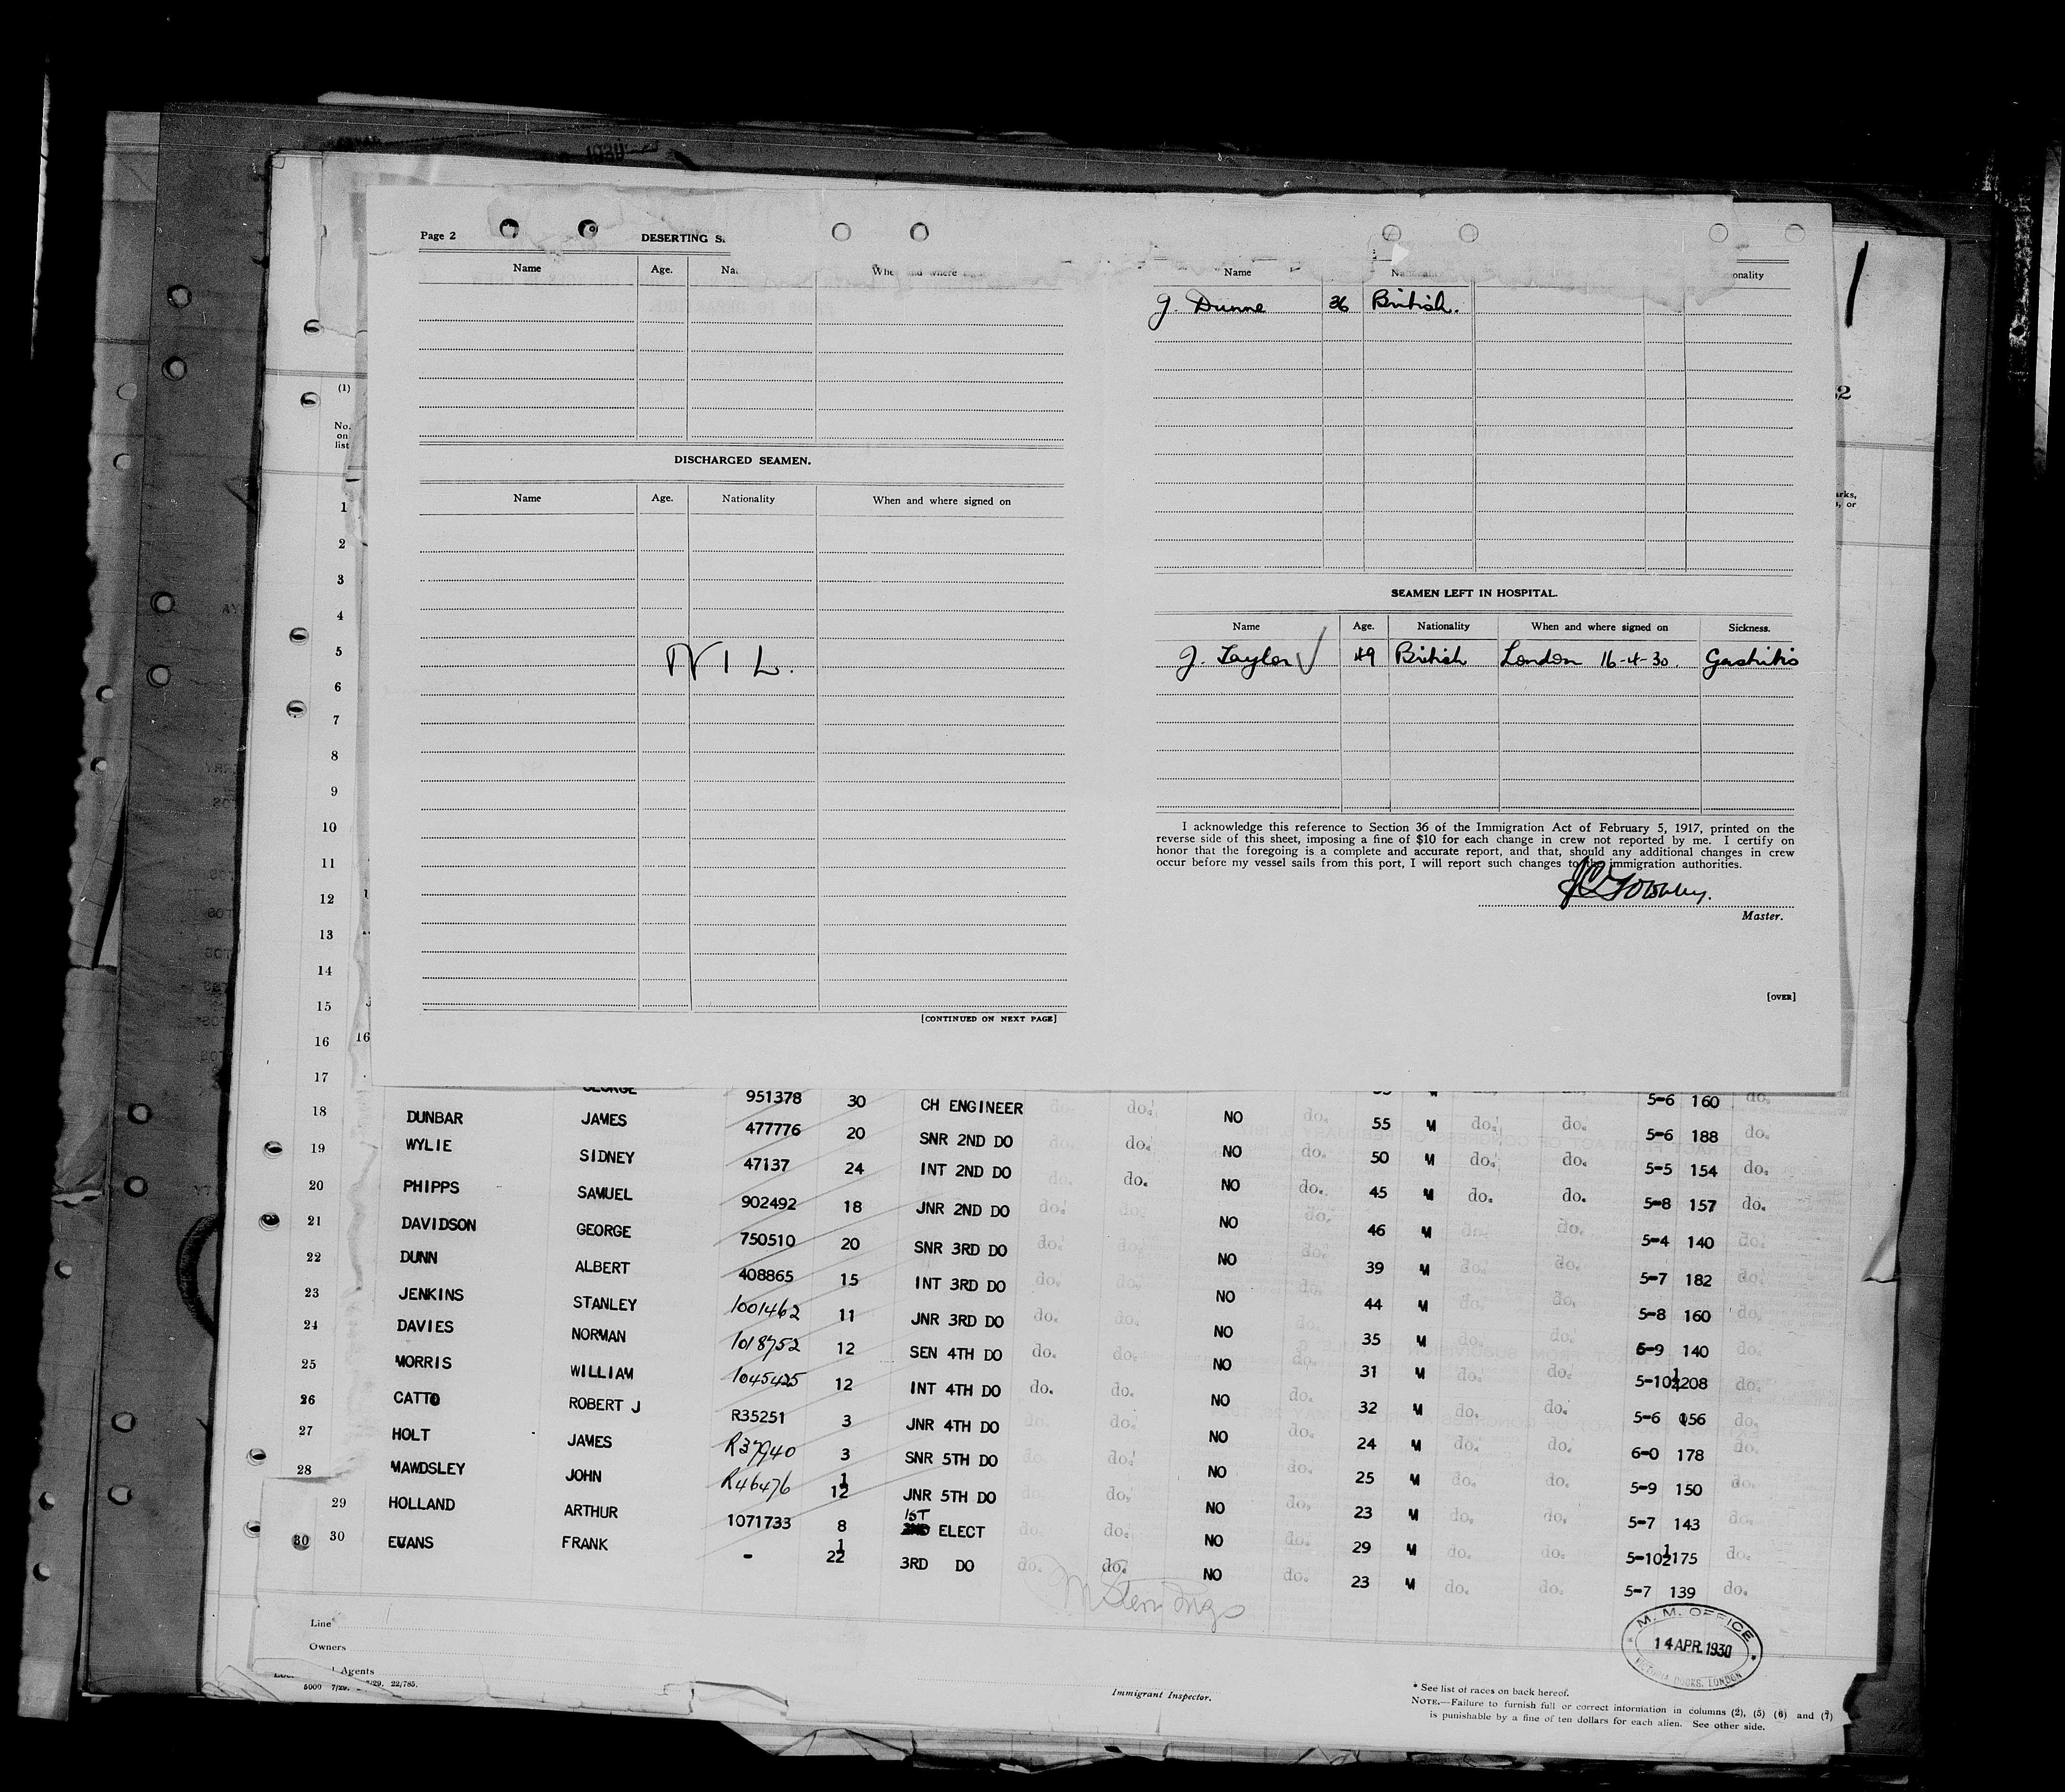 1930
Page 2
DESERTING S
Name Age. Na Whe and where
DISCHARGED SEAMEN.
Name Age. Nationality When and where signed on
NIL.
[CONTINUED ON NEXT PAGE]
Name Nationality onality
J. Dunne 36 British.
SEAMEN LEFT IN HOSPITAL.
Name Age. Nationality When and where signed on Sickness.
J. Taylor 49 British London 16-4-30. Gastritis
I acknowledge this reference to Section 36 of the Immigration Act of February 5, 1917, printed on the
reverse side of this sheet, imposing a fine of $10 for each change in crew not reported by me. I certify on
honor that the foregoing is a complete and accurate report, and that, should any additional changes in crew
occur before my vessel sails from this port, I will report such changes to the immigration authorities.
Master.
[OVER]
(1)
No.
on
list
2
arks,
, or
1
2
3
4
5
6
7
8
9
10
11
12
13
14
15
16 16
17
GEORGE 951378 30 CH ENGINEER do. do. NO do. 55 M do. do. 5-6 160 do.
18 DUNBAR JAMES 477776 20 SNR 2ND DO do. NO do. 50 M do. do. 5-6 188 do.
19 WYLIE SIDNEY 47137 24 INT 2ND DO do. NO do. 45 M do. do. 5-5 154 do.
20 PHIPPS SAMUEL 902492 18 JNR 2ND DO do. do. NO do. 46 M do. do. 5-8 157 do.
21 DAVIDSON GEORGE 750510 20 SNR 3RD DO do. do. NO do. 39 M do. do. 5-4 140 do.
22 DUNN ALBERT 408865 15 INT 3RD DO do. do. NO do. 44 M do. do. 5-7 182 do.
23 JENKINS STANLEY 1001462 11 JNR 3RD DO do. do. NO do. 35 M do. do. 5-8 160 do.
24 DAVIES NORMAN 1018752 12 SEN 4TH DO do. do. NO do. 31 M do. do. 5-9 140 do.
25 MORRIS WILLIAM 1045425 12 INT 4TH DO do. do. NO do. 32 M do. do. 5-10½ 208 do.
26 CATTO ROBERT J R35251 3 JNR 4TH DO do. do. NO do. 24 M do. do. 5-6 156 do.
27 HOLT JAMES R37940 3 SNR 5TH DO do. do. NO do. 25 M do. do. 6-0 178 do.
28 MAWDSLEY JOHN R46476 1/12 JNR 5TH DO do. do. NO do. 23 M do. do. 5-9 150 do.
29 HOLLAND ARTHUR 1071733 8 1ST ELECT do. do. NO do. 29 M do. do. 5-7 143 do.
30 30 EVANS FRANK - 1/22 3RD DO do. do. NO do. 23 M do. do. 5-10½ 175 do.
5-7 139 do.
Line
Owners
Agents
5000 7/29. 7/29. 22/785.
Immigrant Inspector.
M. M. OFFICE
14 APR. 1930
VICTORIA DOCKS, LONDON
* See list of races on back hereof.
NOTE.—Failure to furnish full or correct information in columns (2), (5) (6) and (7)
is punishable by a fine of ten dollars for each alien. See other side.